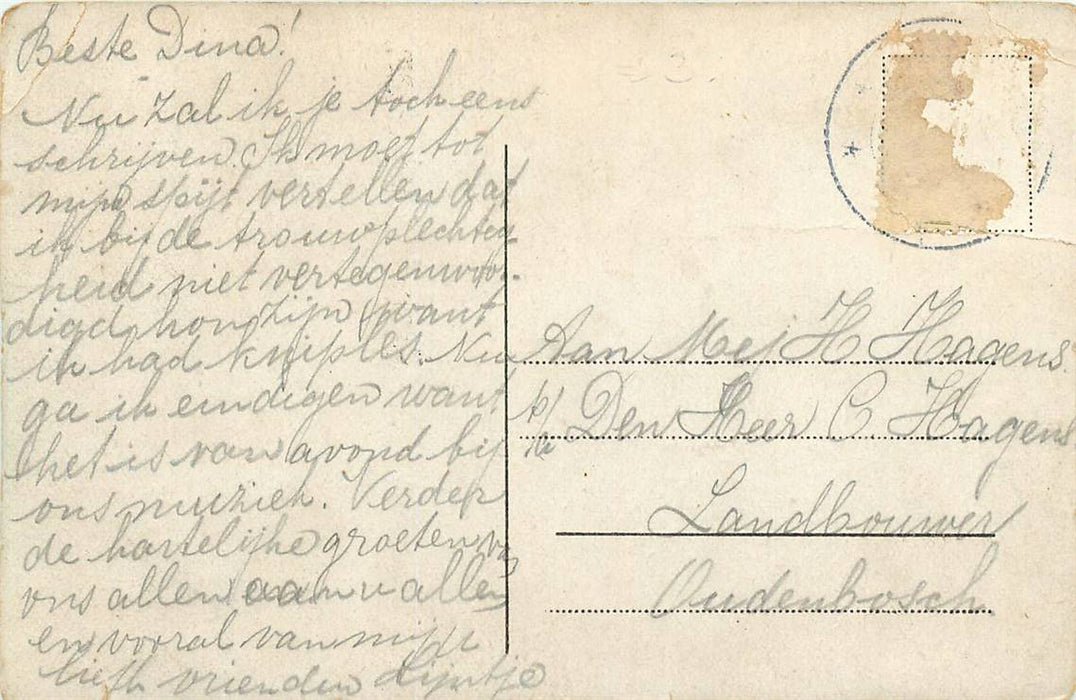 Beste Dina!
Nu zal ik je toch eens
schrijven. Ik moet tot
mijn spijt vertellen dat
ik bij de trouwplechtig
heid niet vertegenwoor-
digd kon zijn want
ik had kniples. Nu
ga ik eindigen want
het is van avond bij
ons muziek. Verder
de hartelijke groeten van
ons allen aan u allen
en vooral van mij je
liefh vriendin Lijntje
Aan Mej H Hagens
p/a Den Heer C Hagens
Landbouwer
Oudenbosch